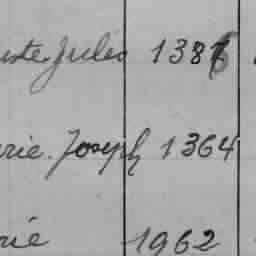 uste Jules 1386
rie. Joseph 1364
rié 1962